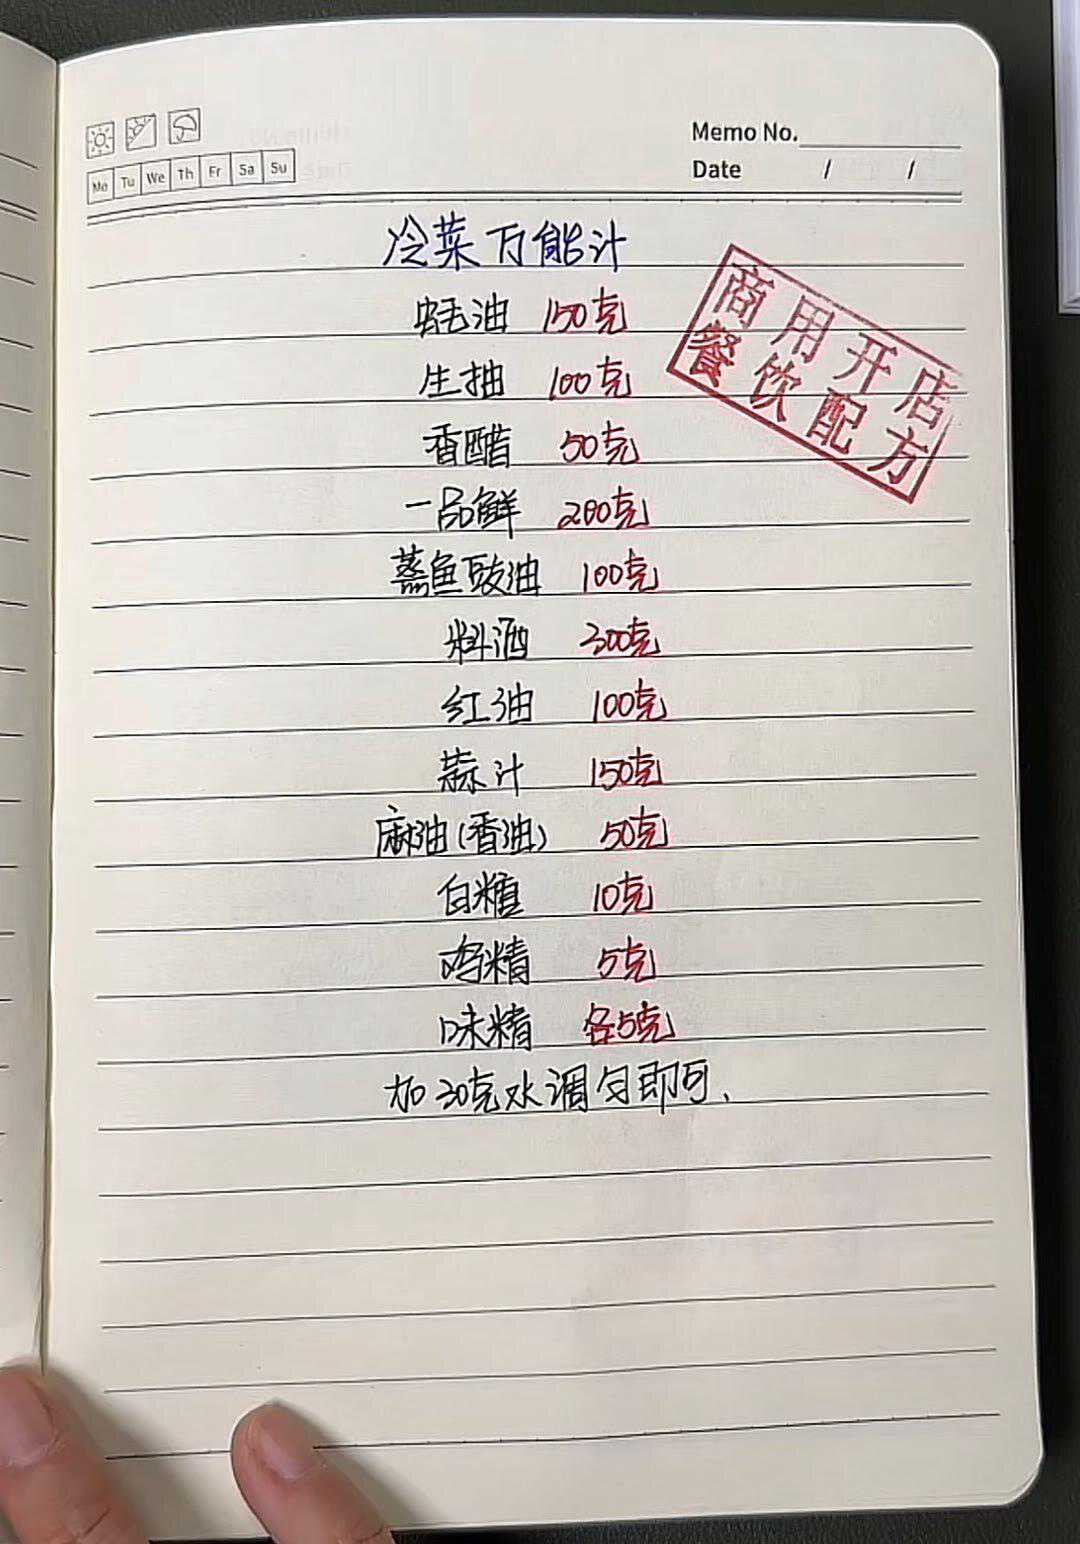 Memo No.
Date / /
Mo Tu We Th Fr Sa Su
冷菜万能汁
商用开店
餐饮配方
蚝油 150克
生抽 100克
香醋 50克
一品鲜 200克
蒸鱼豉油 100克
料酒 300克
红油 100克
蒜汁 150克
麻油(香油) 50克
白糖 10克
鸡精 5克
味精 各5克
加30克水调匀即可.